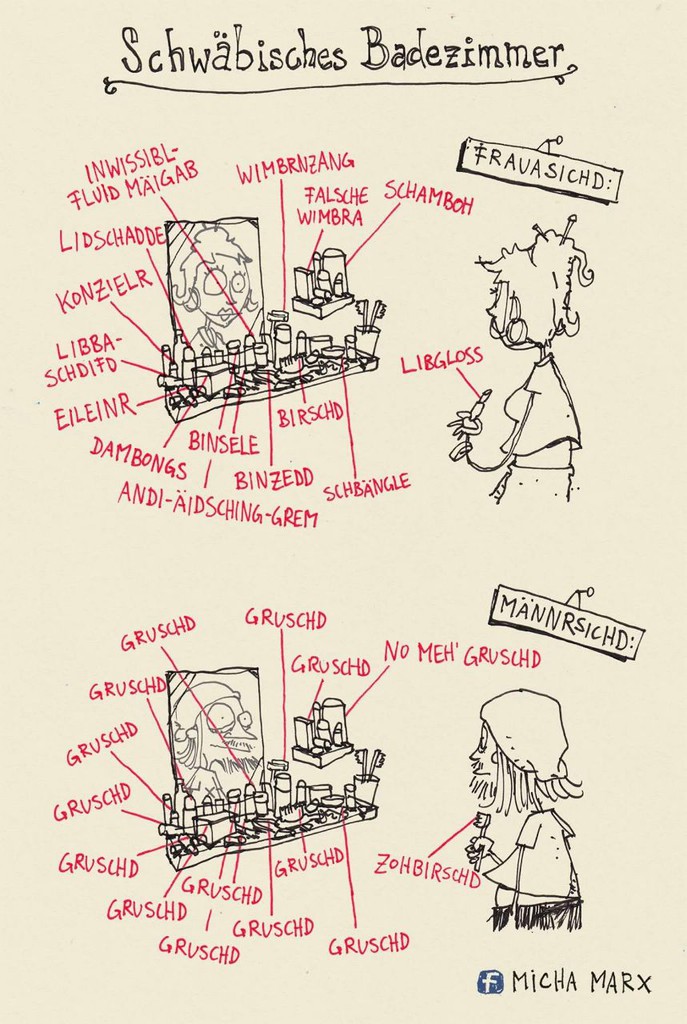 Schwäbisches Badezimmer
FRAUASICHD:
INWISSIBL-
FLUID MÄIGAB
WIMBRNZANG
FALSCHE
WIMBRA
SCHAMBOH
LIDSCHADDE
KONZIELR
LIBBA-
SCHDIFD
EILEINR
DAMBONGS
BINSELE
ANDI-ÄIDSCHING-GREM
BINZEDD
BIRSCHD
SCHBÄNGLE
LIBGLOSS
MÄNNRSICHD:
GRUSCHD
GRUSCHD
GRUSCHD
NO MEH' GRUSCHD
GRUSCHD
GRUSCHD
GRUSCHD
GRUSCHD
GRUSCHD
GRUSCHD
GRUSCHD
GRUSCHD
GRUSCHD
GRUSCHD
ZOHBIRSCHD
f MICHA MARX